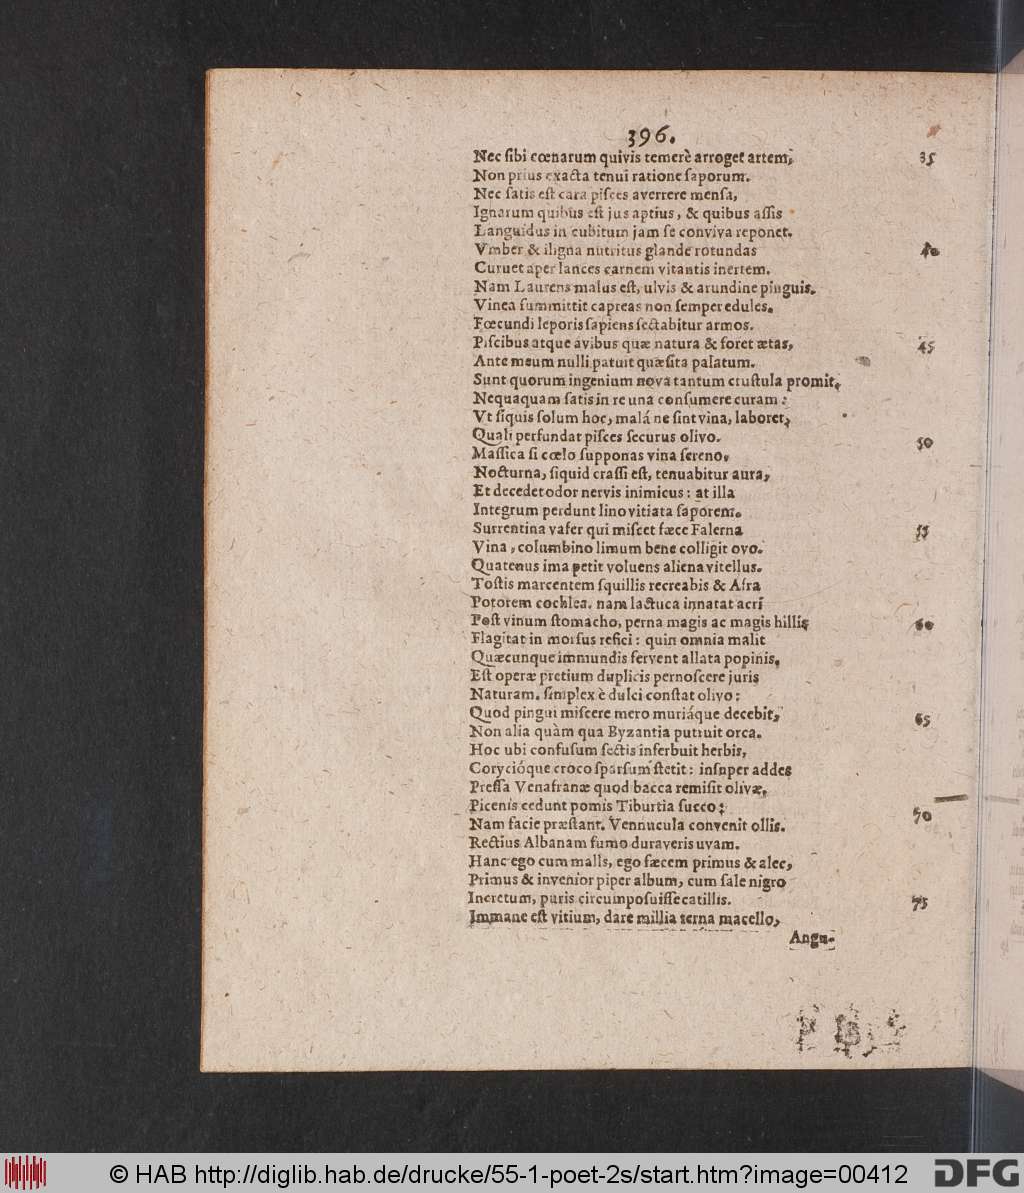 396.
Nec sibi cœnarum quivis temerè arroget artem, 35
Non prius exacta tenui ratione saporum.
Nec satis est cara pisces averrere mensa,
Ignarum quibus est jus aptius, & quibus assis
Languidus in cubitum jam se conviva reponet.
Vmber & iligna nutritus glande rotundas 40
Curuet aper lances carnem vitantis inertem.
Nam Laurens malus est, ulvis & arundine pinguis.
Vinea summittit capreas non semper edules.
Fœcundi leporis sapiens sectabitur armos.
Piscibus atque avibus quæ natura & foret ætas, 45
Ante meum nulli patuit quæsita palatum.
Sunt quorum ingenium nova tantum crustula promit,
Nequaquam satis in re una consumere curam:
Vt siquis solum hoc, malá ne sint vina, laboret,
Quali perfundat pisces securus olivo. 50
Massica si cœlo supponas vina sereno,
Nocturna, siquid crassi est, tenuabitur aura,
Et decedet odor nervis inimicus: at illa
Integrum perdunt lino vitiata saporem.
Surrentina vafer qui miscet fæce Falerna 55
Vina, columbino limum bene colligit ovo.
Quatenus ima petit voluens aliena vitellus.
Tostis marcentem squillis recreabis & Afra
Potorem cochlea. nam lactuca innatat acri
Post vinum stomacho, perna magis ac magis hillis 60
Flagitat in morsus refici: quin omnia malit
Quæcunque immundis fervent allata popinis,
Est operæ pretium duplicis pernoscere juris
Naturam. simplex è dulci constat olivo:
Quod pingui miscere mero muriáque decebit, 65
Non alia quàm qua Byzantia putruit orca.
Hoc ubi confusum sectis inferbuit herbis,
Corycióque croco sparsum stetit: insuper addes
Pressa Venafranæ quod bacca remisit olivæ,
Picenis cedunt pomis Tiburtia succo: 70
Nam facie præstant. Vennucula convenit ollis.
Rectius Albanam fumo duraveris uvam.
Hanc ego cum malls, ego fæcem primus & alec,
Primus & invenior piper album, cum sale nigro
Incretum, puris circumposuisse catillis. 75
Immane est vitium, dare millia terna macello,
Angu-
© HAB http://diglib.hab.de/drucke/55-1-poet-2s/start.htm?image=00412
DFG